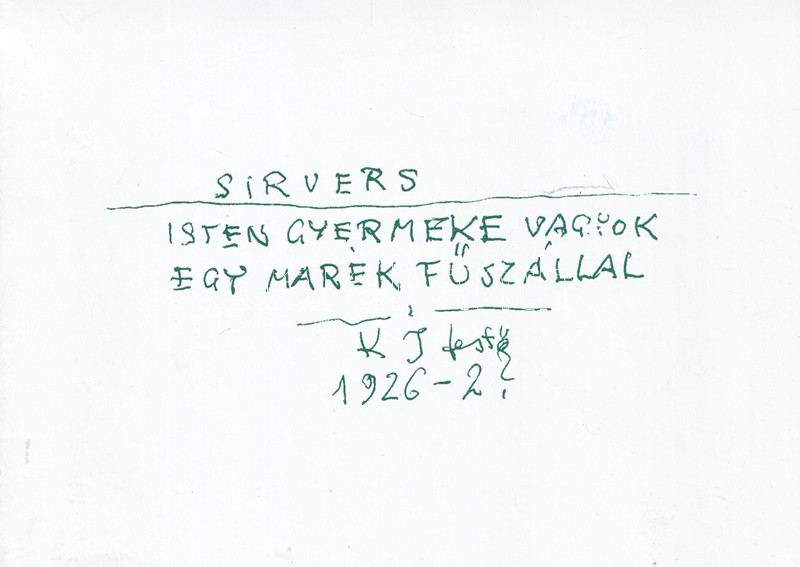 SiRVERS
ISTEN GYERMEKE VAGYOK
EGY MARÉK FŰSZÁLLAL
K J festő
1926-2?